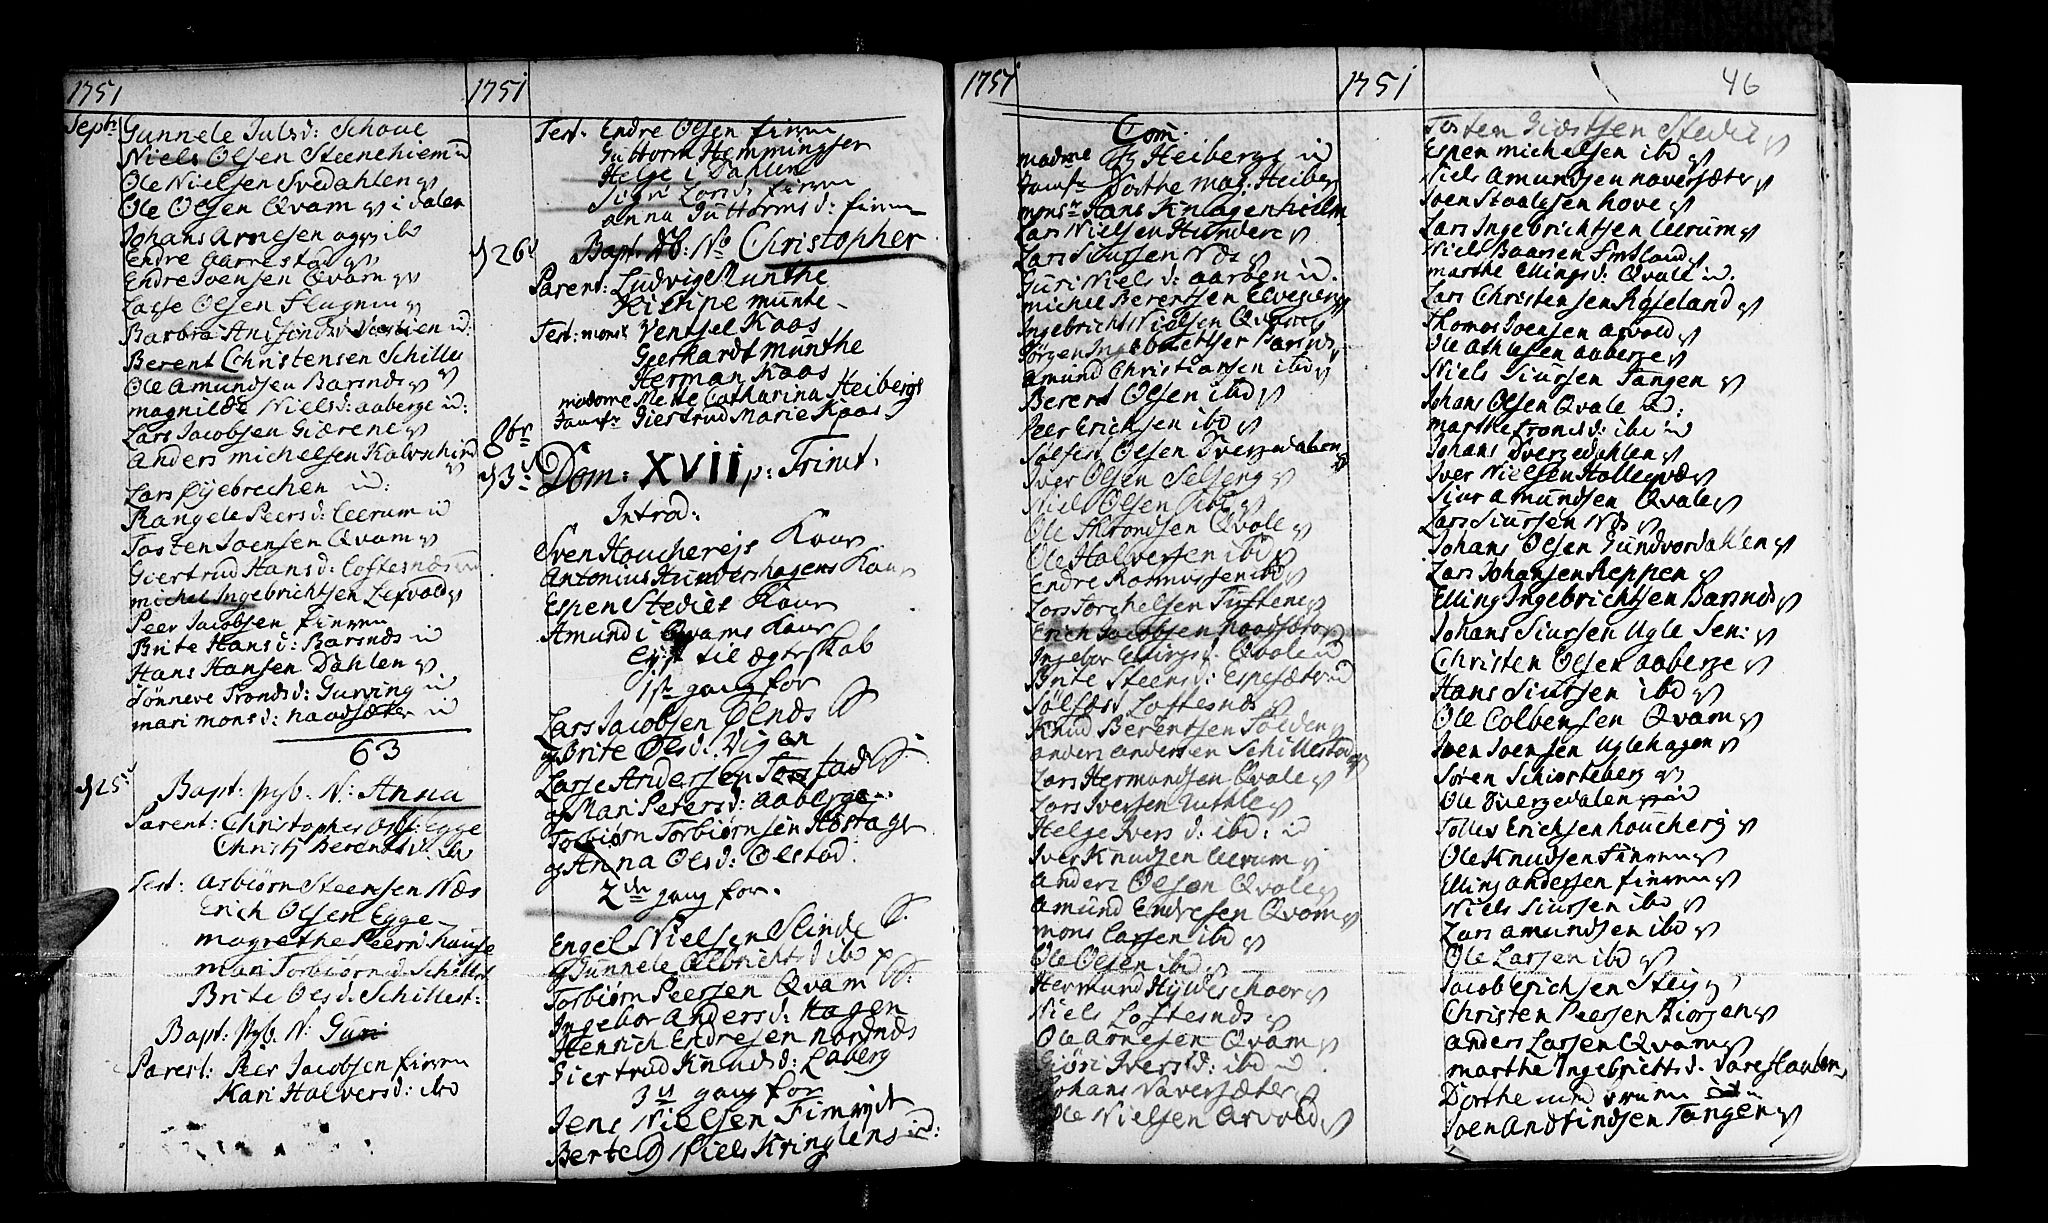 1751
Septr Gunnele Julsd: Schoue
Niels Olsen Steenehiem
Ole Nielsen Svedahlen
Ole Olsen Qvam i dalen
Johans Arnesen ibd
Endre Aarrestad
Endre Ivensen Qvam
Lasse Olsen Flugum
Barbra
Berent Christensen Schilles
Ole Amundsen Barsnes
magnilde Nielsd: aaberge
Lars Jacobsen Giærene
Anders michelsen
Lars Øyebrechen
Rangele Peersd: Leerum
Tosten Ivensen Qvam
Giertrud Hansd: Loftesnes
michel Ingebrichtsen Lefvold
Peer Jacobsen fimm
Brite Hansd: Barsnes
Hans Hansen Dahlen
Sønneve Trondsd: Gurving
mari monsd: naadsæter
63
d 25 Bapt: pyb. N: Anna
Parent: Christopher Olss: Egge
Christi Berentsd: ibd
Test: Asbiørn Steensen Næs
Erich Olsen Egge
magrethe Peern house
mari Torbiørnsd: Schillest
Brite Olsd: Schillest:
Bapt: pyb. N: Guri
Parent: Peer Jacobsen fimm
Kari Halversd: ibd
1751
Test: Endre Olsen fimm
Guttorm Hemmingsen
Helge i Dahlen
Sigri Larsd: fimm
anna Guttormsd: fimm
d 26 Bapt: No Christopher
Parent: Ludvig Munthe
munte
Test: monsr Ventsel Kaas
Geerhardt munthe
Herman Kaas
madame Mette Catharina Heibergs
Jomfr Giertrud Marie Kaas
8br
d 3 Dom: XVII p: Trinit.
Introd:
Sven Houcherejs Kone
Antonius Hundershagens Kone
Espen Stedies Kone
Amund i Qvams Kone
lyst til ægteskab
1ste gang for
Lars Jacobsen Ølnes
og Brite Olsd: Vigen
Lasse Andersen Torstad
og Mari Petersd: aaberge
Torbiørn Torbiørnsen Hostage
og Anna Olsd: Olstad.
2den gang for.
Engel Nielsen Slinde
og Gunnele Olbrichtsd ibd
Torbiørn Peersen Qvam
Ingebor Andersd: Hagen
Henrich Endresen nornes
Giertrud Knudsd: Laberg
3de gang for
Jens Nielsen Fimreit
Berte Niels Kringlens
1751
Com.
madme Heibergs
Jomfr Dorthe mag: Heiberg
monsr Hans Knagenhielm
Lars Nielsen Hundere
Lars Siursen Næs
Guri Nielsd: aarøen
michel Berentsen Elveseng
Ingebricht Nielsen Qvam
Jørgen Ingebrichtsen Barsnes
Amund Christiansen ibd
Berent Olsen ibd
Peer Erichsen ibd
Sølfest Olsen Dvergedahlen
Iver Olsen Selseng
Niels Olsen ibd
Ole Trondsen Qvale
Ole Halversen ibd
Endre Rasmussen ibd
Lars Torchelsen Tuftene
Erich Jacobsen naadsæter
Ingebor Ellingsd: Qvale
Brite Steensd: Espesæt
Sølfest Loftesnes
Knud Berentsen Foldeng
anders andersen Schillestad
Lars Hermundsen Qvale
Lars Iversen Nuthle
Helge Iversd: ibd:
Iver Knudsen Leerum
Anders Olsen Qvale
Amund Endresen Qvam
mons Larsen ibd
Ole Olsen ibd
Hermund Hylleschoer
Niels Loftesnes
Ole Arnesen Qvam
Giøri Iversd: ibd
Johans Naversæter
Ole Nielsen Arvold
1751
46
Tosten Giestsen Stedie
Espen michelsen ibd
Niels Amundsen naversæter
Iven Staalesen hove
Lars Ingebrichtsen Leerum
Niels Baarsen Fimland
marthe Ellingsd: Qvale
Lars Christensen Røseland
Thomas Ivensen arvold
Ole Athlesen aaberge
Niels Siursen Tangen
Johans Olsen Qvale
marthe Trondsd: ibd
Johans Dvergedahlen
Iver Nielsen Hollegvæ
Siur amundsen Qvale
Lars Siursen Næs
Johans Olsen Gundvordahlen
Lars Johansen Reppen
Elling Ingebrichtsen Barsnes
Johans Siursen Ugle Sen:
Christen Olsen aaberge
Hans Siursen ibd
Ole Colbensen Qvam
Iven Ivensen Uglehagen
Søren Schiorteberg
Ole Dvergedalen
Tolles Erichsen houcherej
Ole Knudsen Fimm
Elling andersen fimm
Niels Siursen ibd
Lars amundsen ibd
Ole Larsen ibd
Jacob Erichsen Steig
Christen Peersen Biorgen
anders Larsen Qvam
marthe Ingebrichtsd.
Dorthe
Iven Andfindsen Tangen